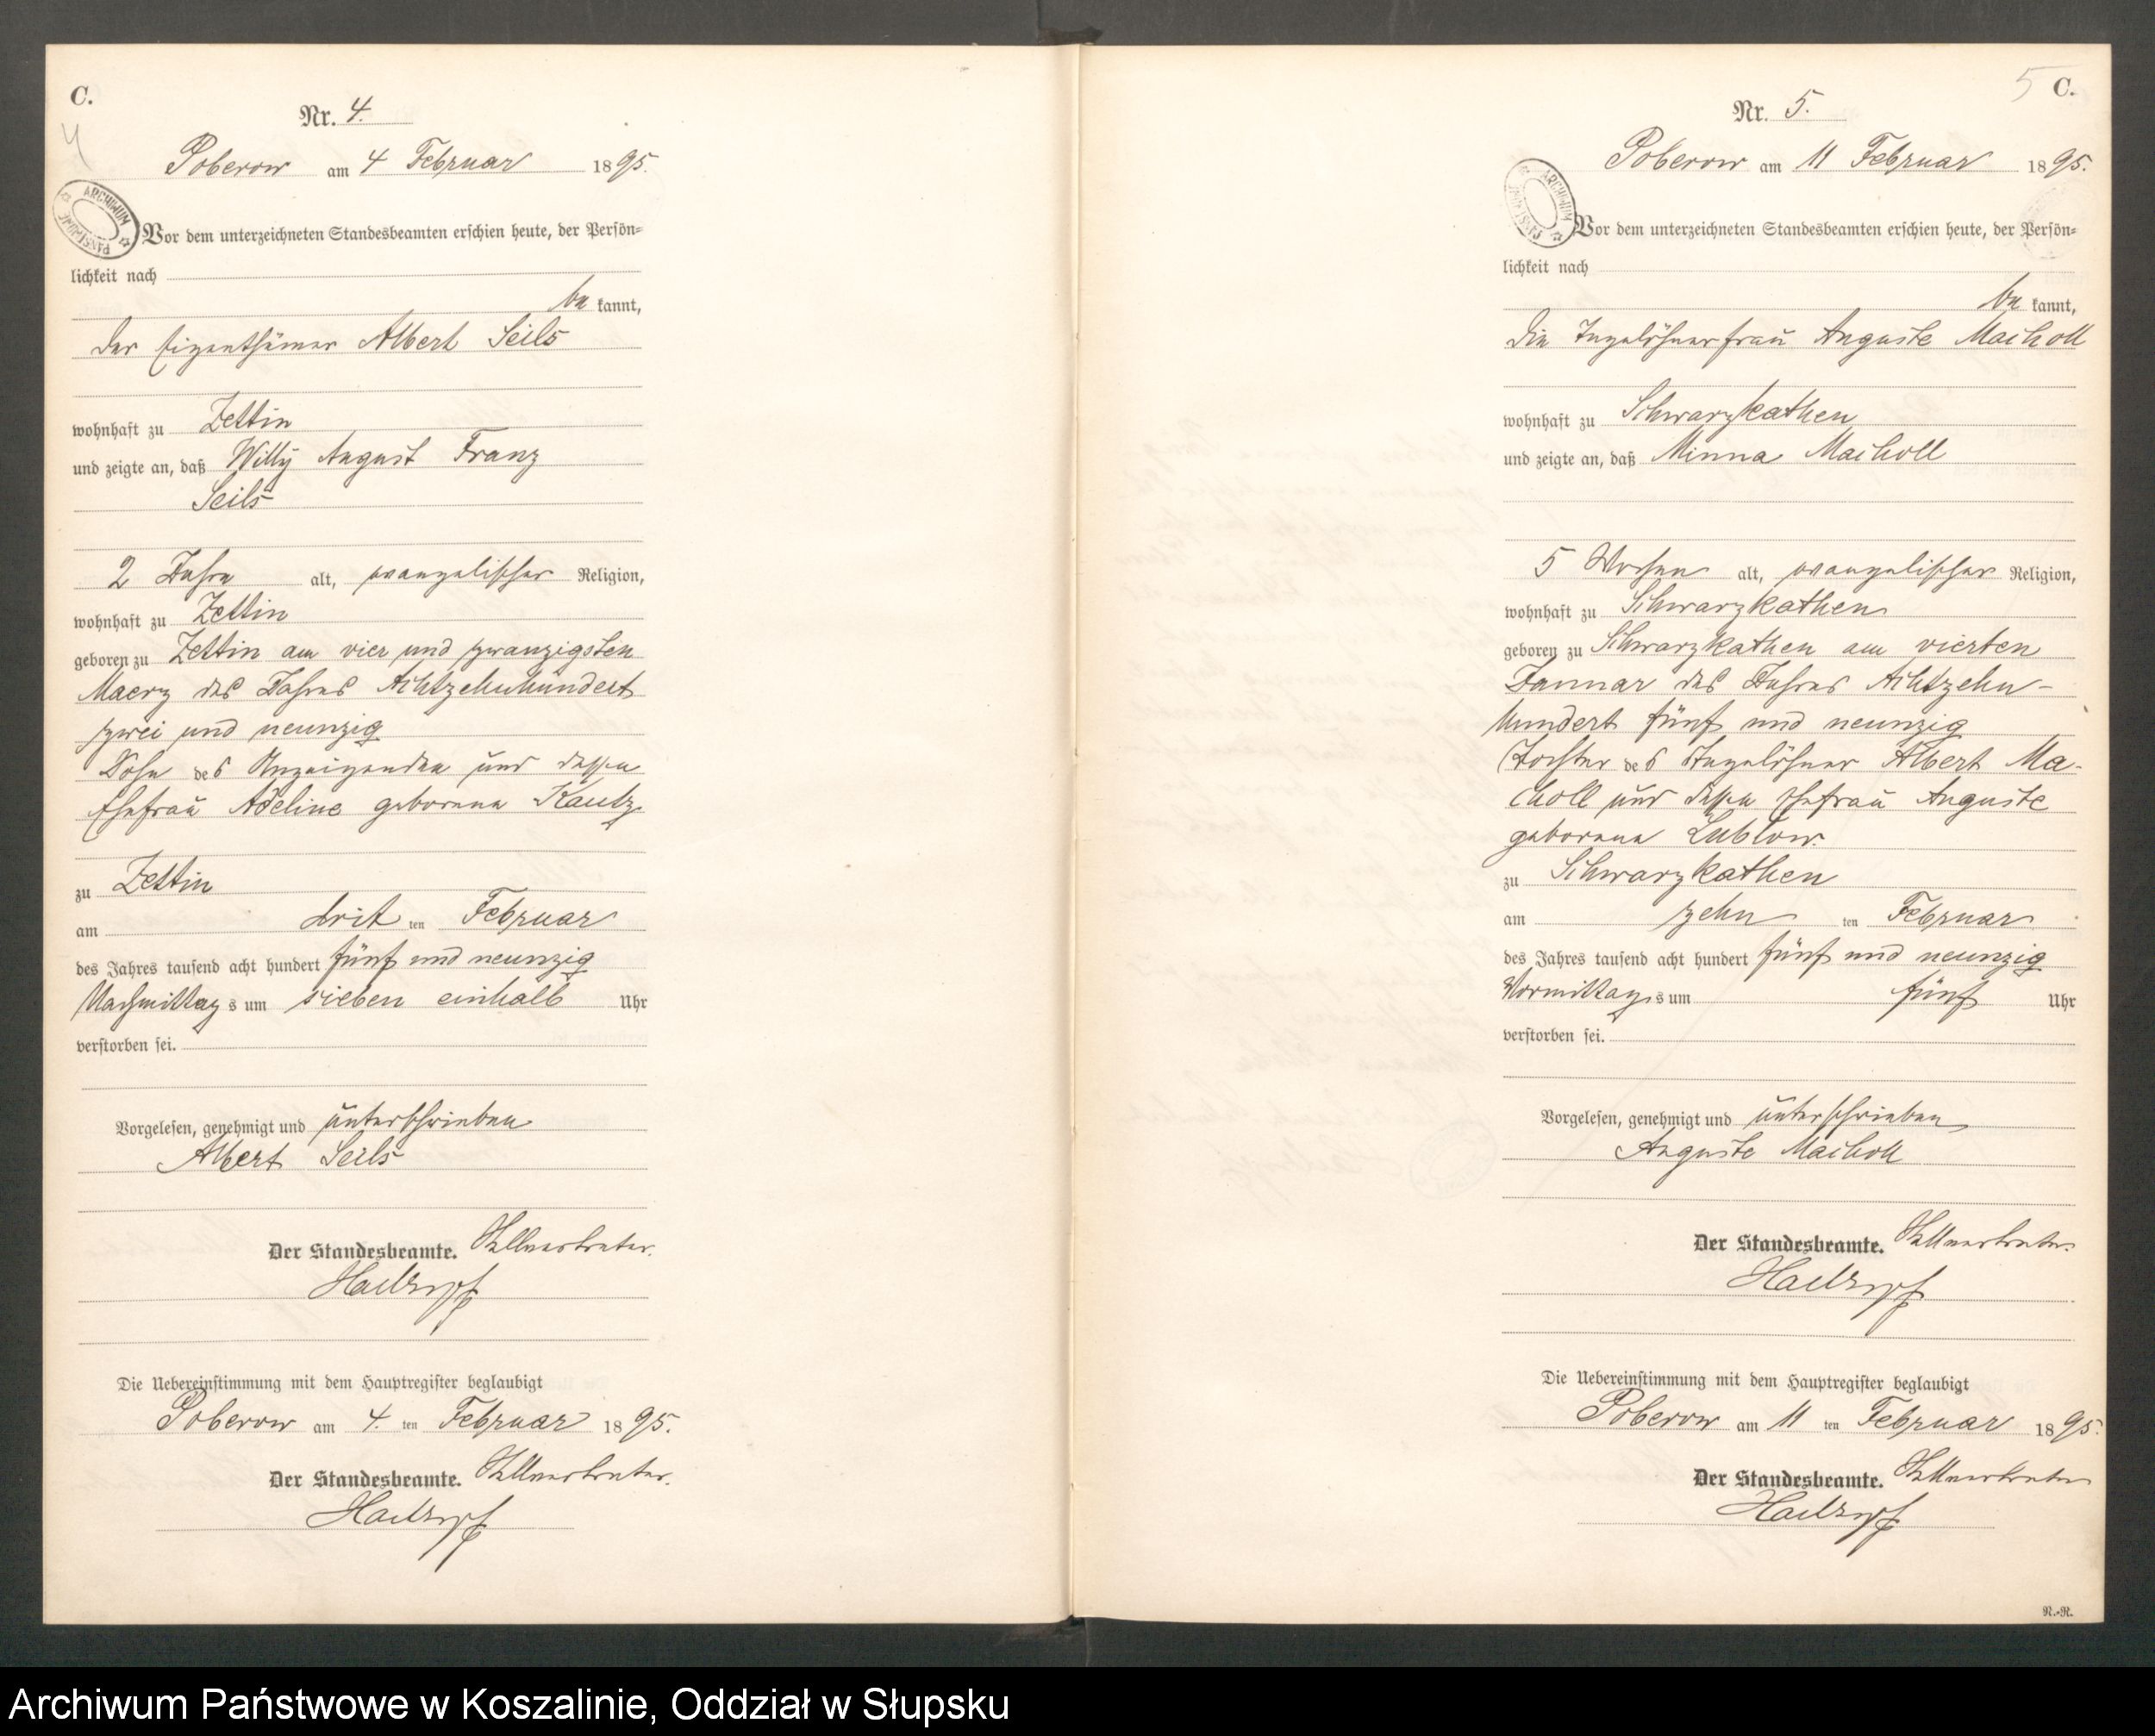 C.
4
Nr. 4.
Poberow am 4 Februar 1895.
ARCHIWUM PAŃSTWOWE
Vor dem unterzeichneten Standesbeamten erschien heute, der Persön=
lichkeit nach
be kannt,
der Eigenthümer Albert Seils
wohnhaft zu Zettin
und zeigte an, daß Willy August Franz
Seils
2 Jahre alt, evangelischer Religion,
wohnhaft zu Zettin
geboren zu Zettin am vier und zwanzigsten
Maerz des Jahres Achtzehnhundert
zwei und neunzig
Sohn des Anzeigenden und dessen
Ehefrau Adeline geborene Kautz
zu Zettin
am drit ten Februar
des Jahres tausend acht hundert fünf und neunzig
Nachmittag s um sieben einhalb Uhr
verstorben sei.
Vorgelesen, genehmigt und unterschrieben
Albert Seils
Der Standesbeamte. Stellvertreter.
Die Uebereinstimmung mit dem Hauptregister beglaubigt
Poberow am 4. ten Februar 1895.
Der Standesbeamte. Stellvertreter.
5 C.
Nr. 5.
Poberow am 11 Februar 1895.
ARCHIWUM PAŃSTWOWE
Vor dem unterzeichneten Standesbeamten erschien heute, der Persön=
lichkeit nach
be kannt,
die Tagelöhnerfrau Auguste Macholl
wohnhaft zu Schwarzkathen
und zeigte an, daß Minna Macholl
5 Wochen alt, evangelischer Religion,
wohnhaft zu Schwarzkathen
geboren zu Schwarzkathen am vierten
Januar des Jahres Achtzehn-
hundert fünf und neunzig
Tochter des Tagelöhner Albert Ma-
choll und dessen Ehefrau Auguste
geborene Lublow.
zu Schwarzkathen
am zehn ten Februar
des Jahres tausend acht hundert fünf und neunzig
Vormittag s um fünf Uhr
verstorben sei.
Vorgelesen, genehmigt und unterschrieben
Auguste Macholl
Der Standesbeamte. Stellvertreter.
Die Uebereinstimmung mit dem Hauptregister beglaubigt
Poberow am 11 ten Februar 1895.
Der Standesbeamte. Stellvertreter
R.-R.
Archiwum Państwowe w Koszalinie, Oddział w Słupsku